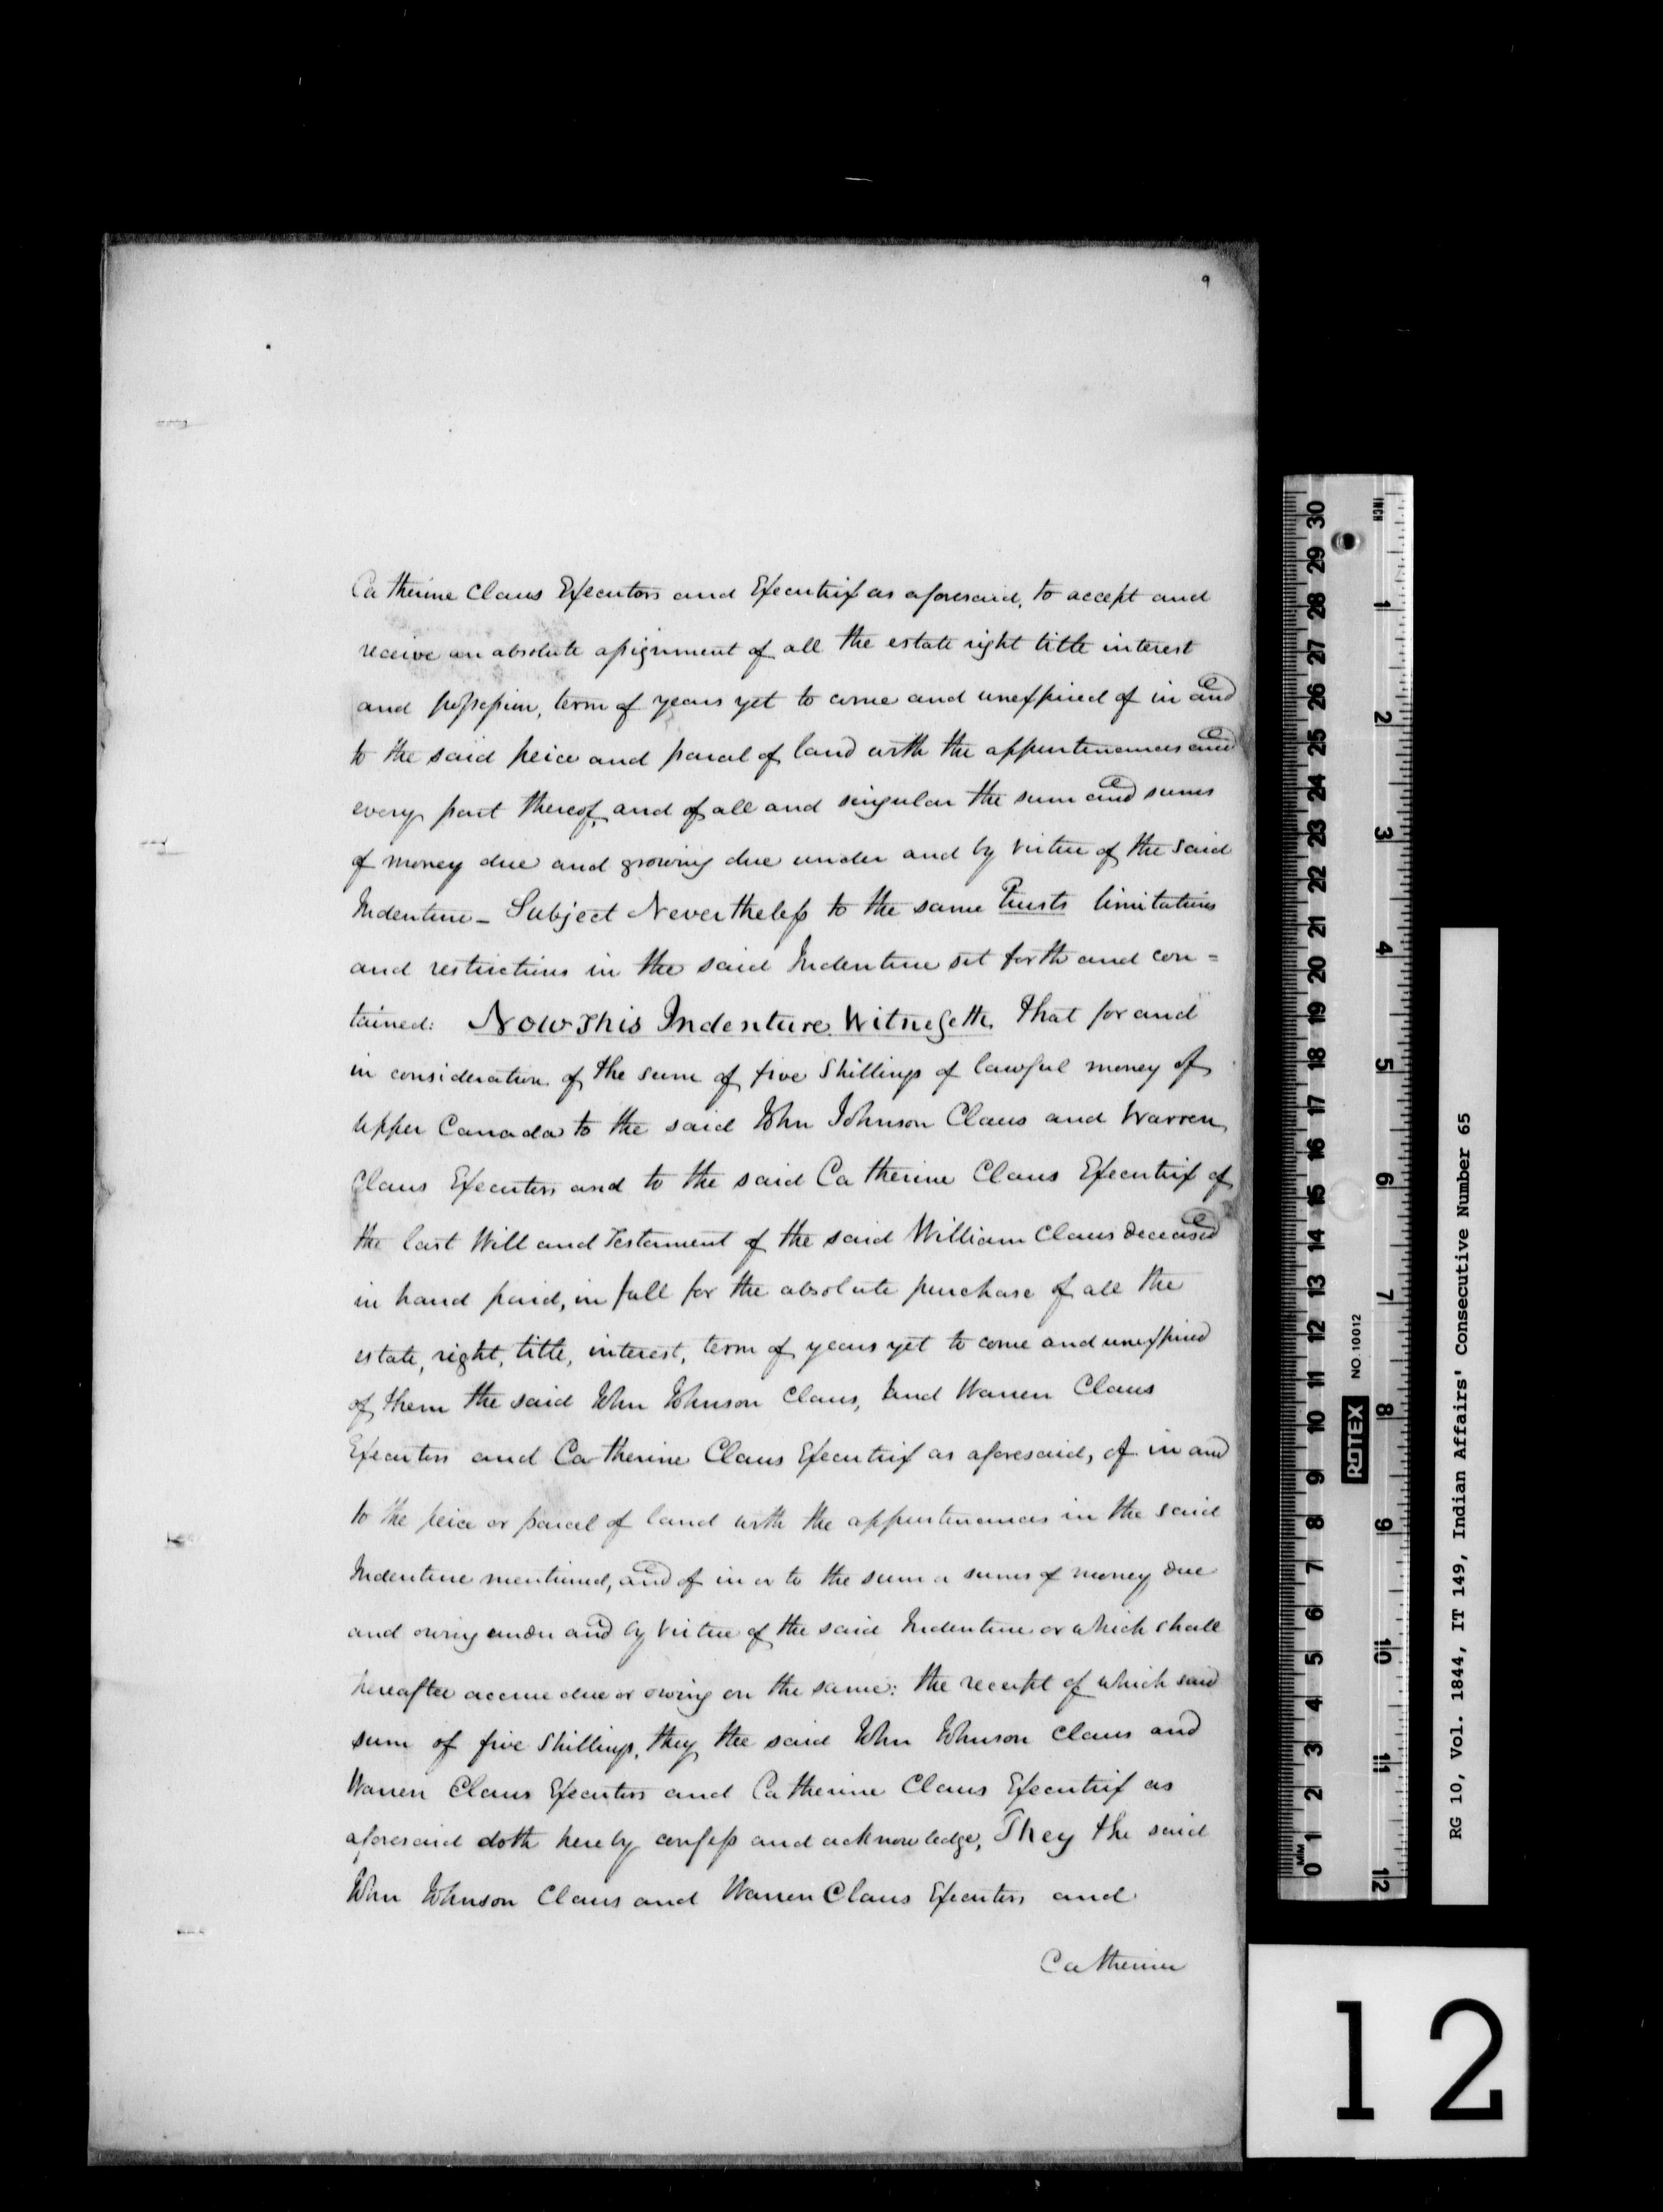 9
Catherine Claus Executors and Executrix as aforesaid, to accept and
receive an absolute assignment of all the estate right title interest
and possession, term of years yet to come and unexpired of in and
to the said peice and parcel of land with the appurtenances and
every part thereof, and of all and singular the sum and sums
of money due and growing due under and by virtue of the said
Indenture - Subject Nevertheless to the same Trusts limitations
and restrictions in the said Indenture set forth and con=
tained: Now This Indenture Witnesseth, that for and
in consideration of the sum of five Shillings of lawful money of
Upper Canada to the said John Johnson Claus and Warren
Claus Executors and to the said Catherine Claus Executrix of
the last Will and Testament of the said William Claus deceased
in hand paid, in full for the absolute purchase of all the
estate, right, title, interest, term of years yet to come and unexpired
of them the said John Johnson Claus, and Warren Claus
Executors and Catherine Claus Executrix as aforesaid, of in and
to the peice or parcel of land with the appurtenances in the said
Indenture mentioned, and of in or to the sum or sums of money due
and owing under and by virtue of the said Indenture or which shall
hereafter accrue due or owing on the same: the receipt of which said
sum of five Shillings, they the said John Johnson Claus and
Warren Claus Executors and Catherine Claus Executrix as
aforesaid doth hereby confess and acknowledge, They the said
John Johnson Claus and Warren Claus Executors and
Catherine
INCH
1 2 3 4 5 6 7 8 9 10 11 12
30 29 28 27 26 25 24 23 22 21 20 19 18 17 16 15 14 13 12 11 10 9 8 7 6 5 4 3 2 1 0
MM
ROTEX NO. 10012
RG 10, Vol. 1844, IT 149, Indian Affairs' Consecutive Number 65
12